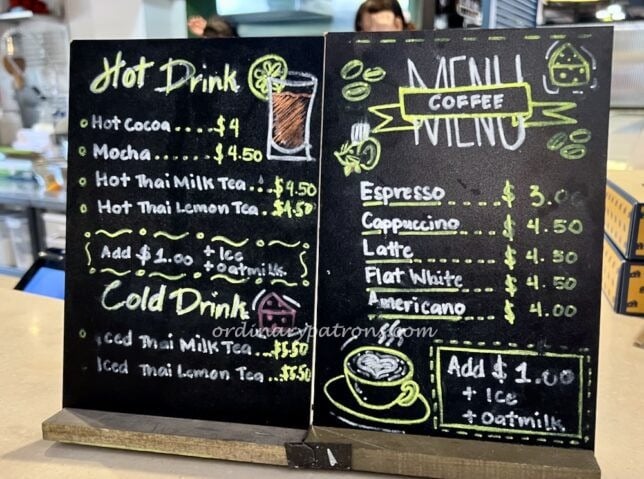 Hot Drink
Hot Cocoa....$4
Mocha........$4.50
Hot Thai Milk Tea...$4.50
Hot Thai Lemon Tea..$4.50
Add $1.00 + Ice
+ Oatmilk
Cold Drink
Iced Thai Milk Tea...$5.50
Iced Thai Lemon Tea...$5.50
MENU
COFFEE
MENU
Espresso.....$ 3.00
Cappuccino....$ 4.50
Latte........$ 4.50
Flat White....$ 4.50
Americano....$ 4.00
Add $1.00
+ Ice
+ Oatmilk
ordinarypatrons.com